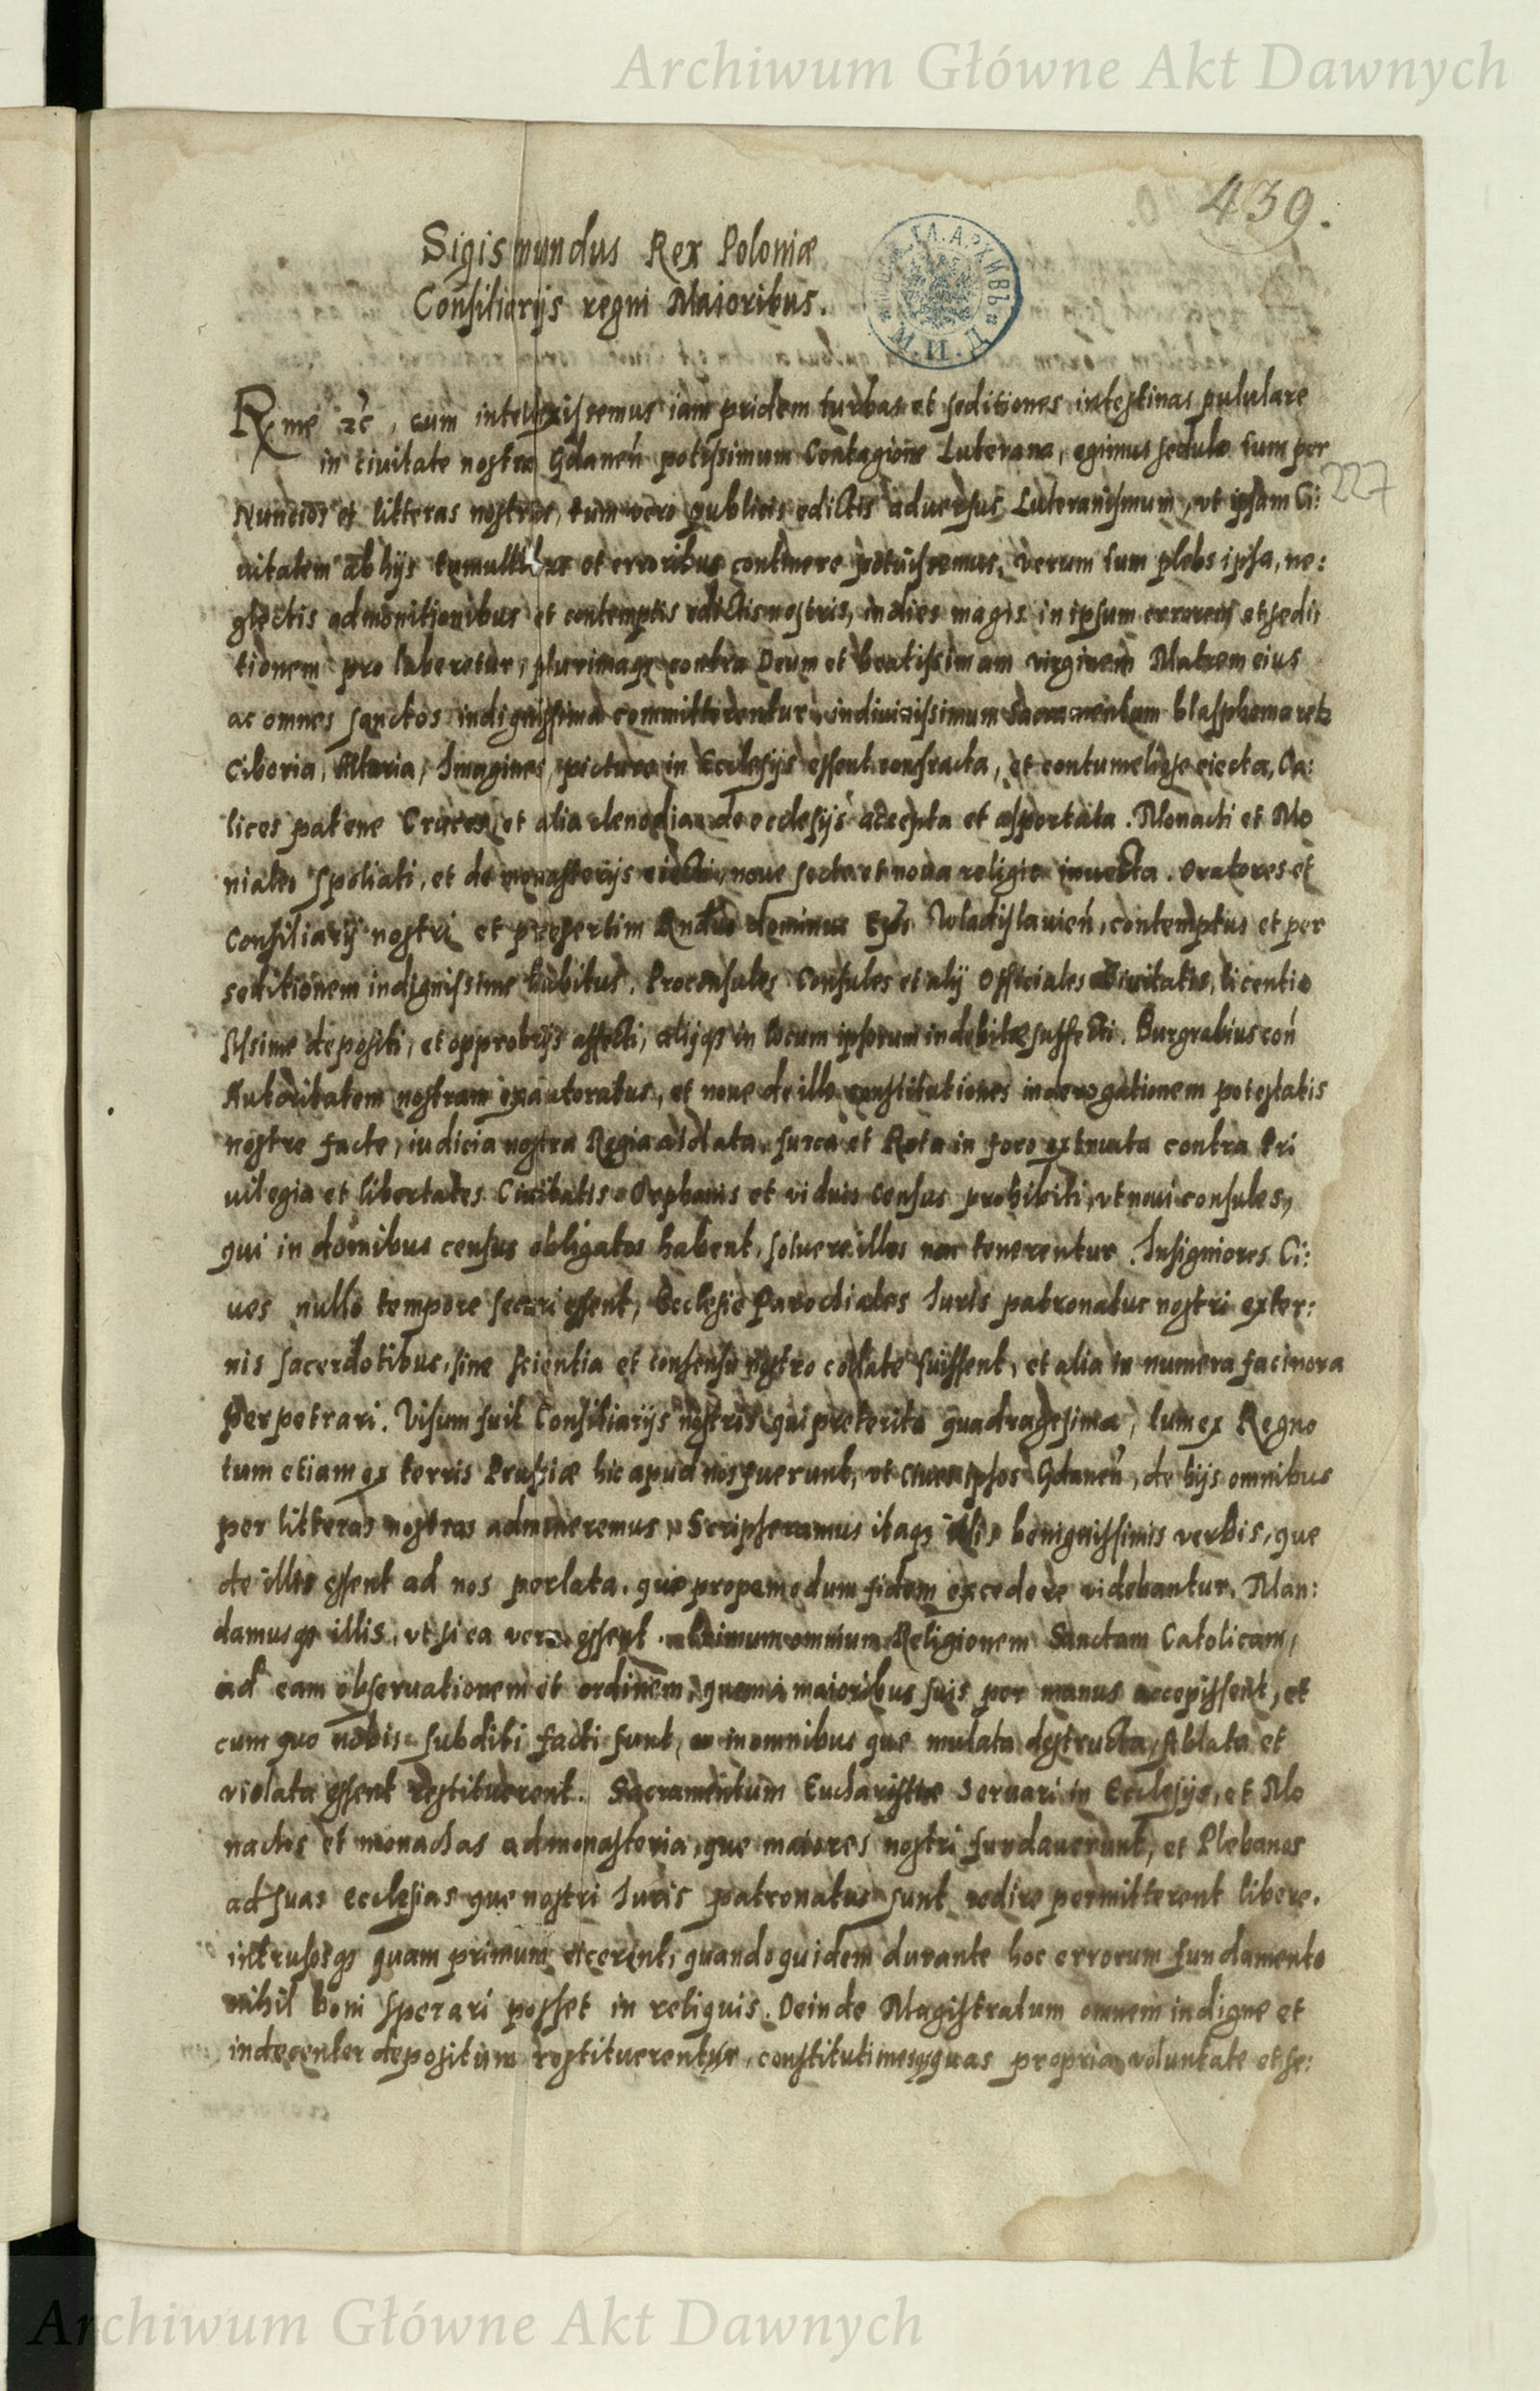 Archiwum Główne Akt Dawnych
439.
Sigismundus Rex Poloniæ
Consiliarijs regni Maioribus.
Rme &c, cum intellexissemus iam pridem turbas et seditiones intestinas pululare
in civitate nostra Gdanen̄ potissimum Contagione Luterana, egimus sedulo tum per
227
Nuncios et litteras nostras, tum vero publicis edictis adversus Luteranismum, vt ipsam Ci:
uitatem ab hijs tumultibus et erroribus continere potuissemus. Verum tum plebs ipsa, ne:
glectis admonitionibus et contemptis edictis nostris, indies magis in ipsum errorem et sedi:
tionem pro laberetur, plurimaqз contra Deum et beatissimam virginem Matrem eius
ac omnes sanctos indignissima committerentur, in diuinissimum Sacramentum blasphemaretr
Ciboria, Altaria, Imagines, picture in Ecclesijs essent confracta, et contumeliose eiecta, Ca:
lices patene Cruces et alia clenodia de ecclesijs accepta et asportata. Monachi et Mo
niales spoliati, et de monasterijs eiecti, noue secte et noua religio inuecta. Oratores et
Consiliarij nostri et presertim Rndus dominus Eps̄ Wladislauien̄, contemptus et per
seditionem indignissime habitus. Proconsules Consules et alij Officiales Civitatis, licentio
sissime depositi, et opprobrijs affecti, alijqз in locum ipsorum indebite suffecti. Burgrabius con̄
Autoritatem nostram exautoratus, et noue de illo constitutiones in derogationem potestatis
nostre facte, iudicia nostra Regia ablata, furca et Rota in foro extructa contra Pri
uilegia et libertates Civitatis. Orphanis et viduis census prohibiti, vt noui consules,
qui in domibus census obligatos habent, soluere illos non tenerentur. Insigniores Ci:
ues nullo tempore securi essent, Ecclesie Parochiales Iuris patronatus nostri exter:
nis sacerdotibus, sine scientia et consensu nostro collate fuissent, et alia in numera facinora
perpetrari. Visum fuit Consiliarijs nostris qui preterita quadragesima, tum ex Regno
tum etiam ex terris Prussiæ hic apud nos fuerunt, vt ciues ipsos Gdanen̄, de hijs omnibus
per litteras nostras admoneremus. Scripseramus itaqз illis benignissimis verbis, que
de illis essent ad nos perlata, que propemodum fidem excedere videbantur. Man:
damusqз illis, vt si ea vera essent omnium Religionem Sanctam Catolicam,
ad eam observationem et ordinem, quem a maioribus suis per manus accepissent, et
cum quo nobis subditi facti sunt, in omnibus que mutata destructa, Ablata et
violata essent restituerent. Sacramentum Eucharistie Seruari in Ecclesijs, et Mo
nachos et monachas ad monasteria, que maiores nostri fundauerunt, et Plebanos
ad suas ecclesias que nostri Iuris patronatus sunt redire permitterent libere.
intrusosqз quam primum eicerent, quandoquidem durante hoc errorum fundamento
nihil boni sperari posset in reliquis. Deinde Magistratum omnem indigne et
indecenter depositum restituerentur, constitutionesqз quas propria voluntate et se:
Archiwum Główne Akt Dawnych